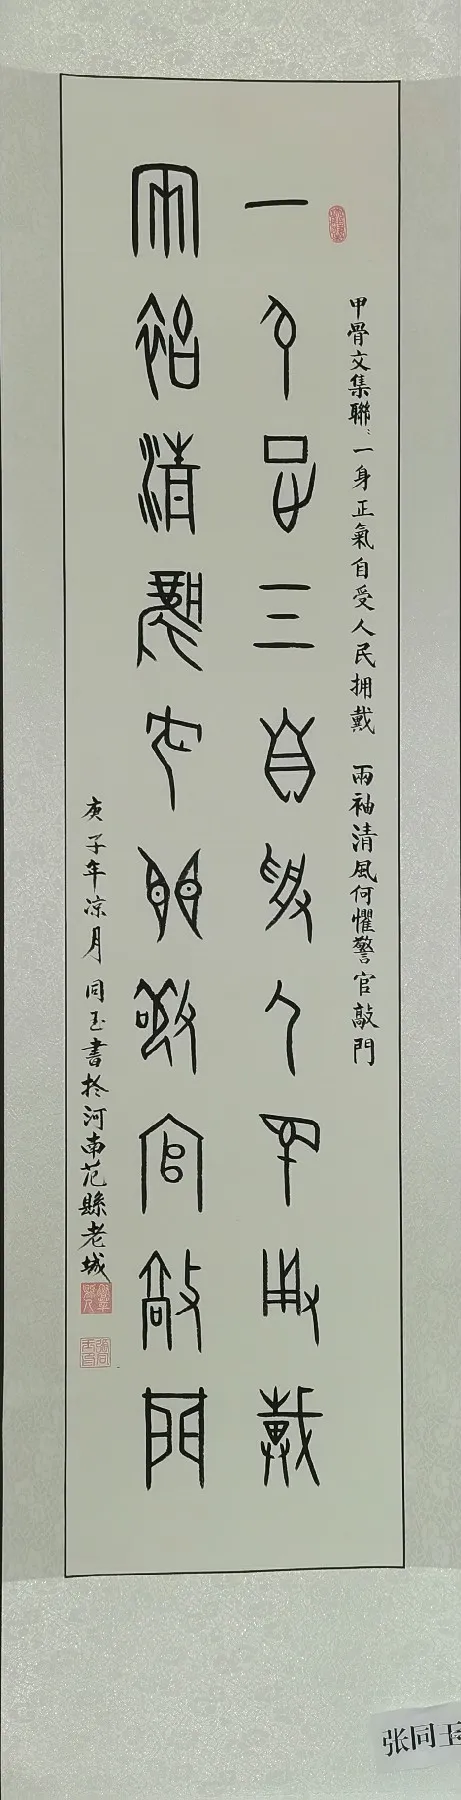 甲骨文集聯：一身正氣自受人民拥戴　兩袖清風何懼警官敲門
一身正气自受人民拥戴
兩袖清風何懼警官敲門
庚子年凉月同玉書於河南范縣老城
张同玉